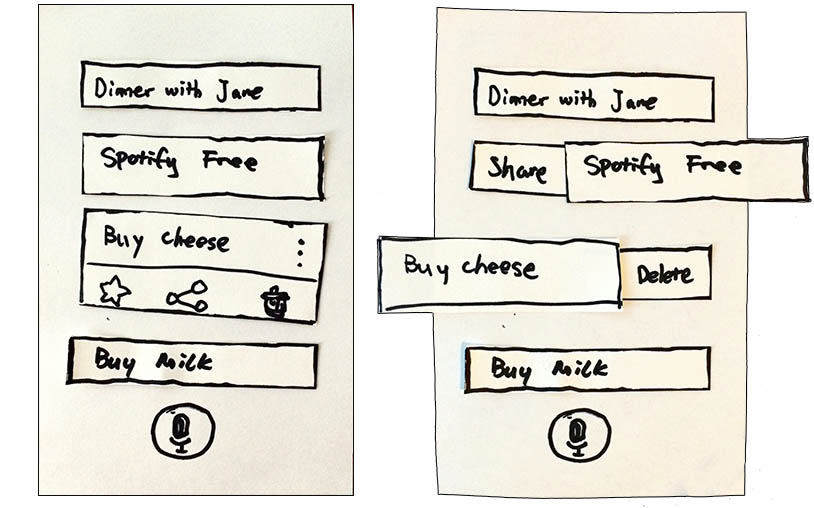 Dinner with Jane
Spotify Free
Buy cheese
Buy Milk
Dinner with Jane
Share Spotify Free
Buy cheese Delete
Buy Milk